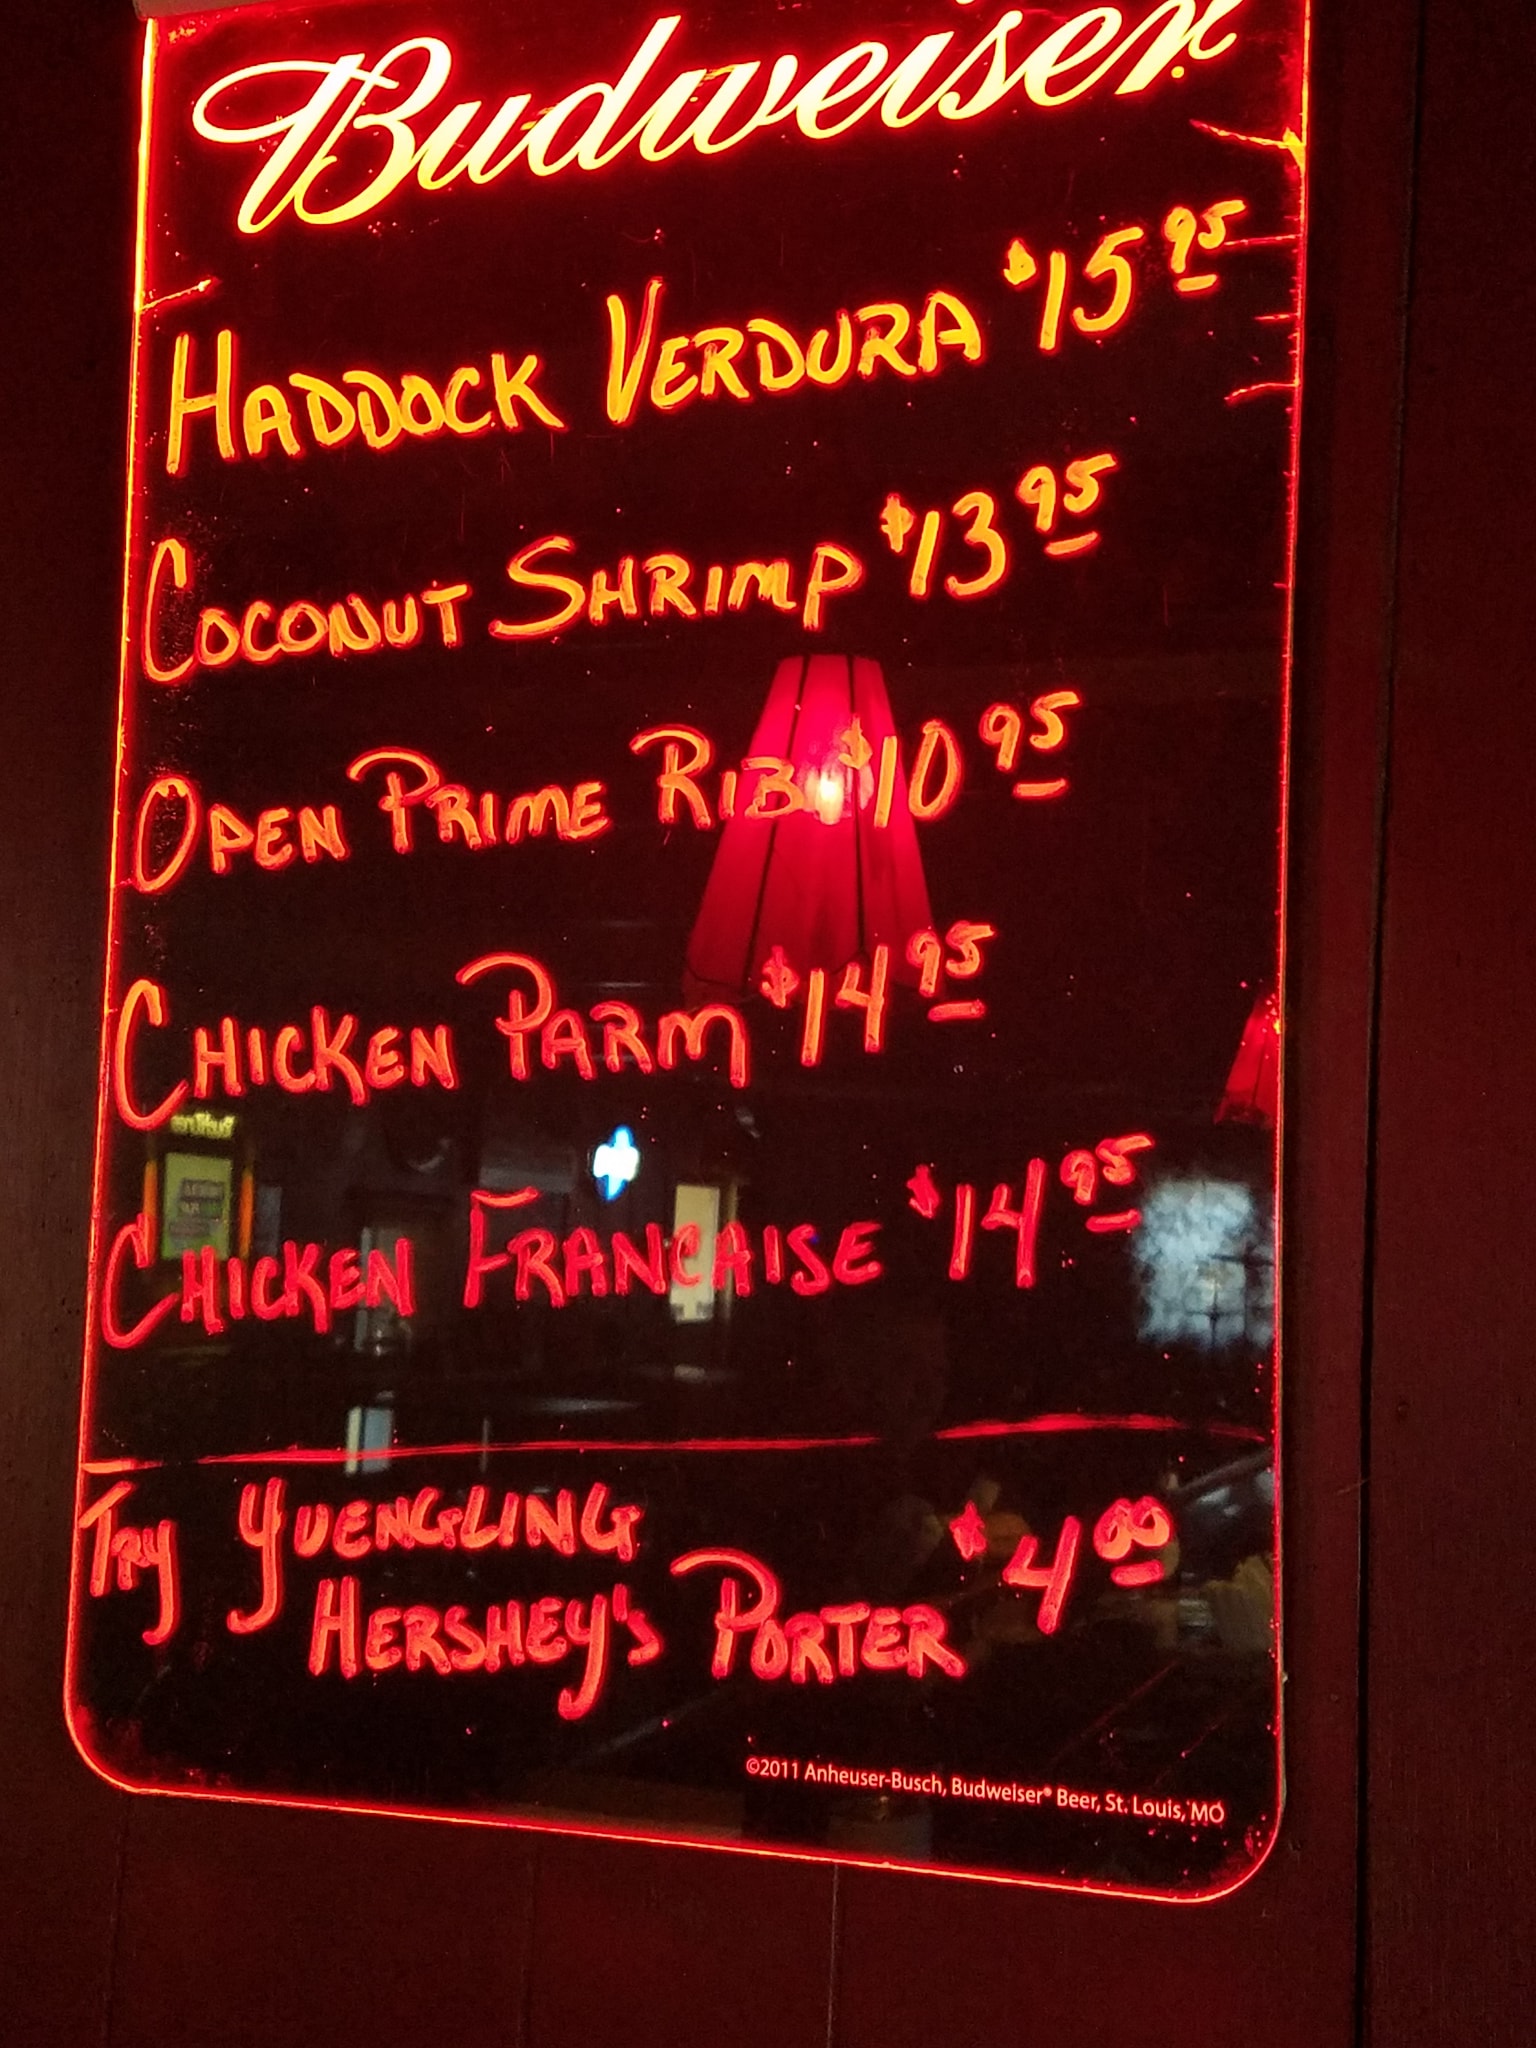 Budweiser
HADDOCK VERDURA $15.95
COCONUT SHRIMP $13.95
OPEN PRIME RIB $10.95
CHICKEN PARM $14.95
CHICKEN FRANCAISE $14.95
TRY YUENGLING
HERSHEY'S PORTER $4.00
©2011 Anheuser-Busch, Budweiser® Beer, St. Louis, MO